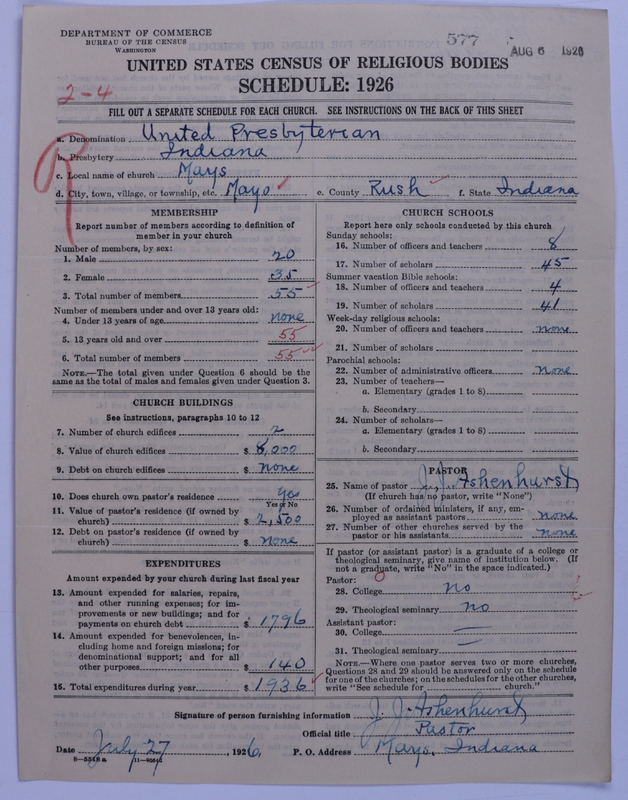 DEPARTMENT OF COMMERCE
BUREAU OF THE CENSUS
WASHINGTON
577
AUG 6 1926
UNITED STATES CENSUS OF RELIGIOUS BODIES
SCHEDULE: 1926
2-4
FILL OUT A SEPARATE SCHEDULE FOR EACH CHURCH. SEE INSTRUCTIONS ON THE BACK OF THIS SHEET
R
a. Denomination United Presbyterian
b. Presbytery Indiana
c. Local name of church Mays
d. City, town, village, or township, etc. Mays e. County Rush f. State Indiana
MEMBERSHIP
Report number of members according to definition of
member in your church
Number of members, by sex:
1. Male 20
2. Female 35
3. Total number of members 55
Number of members under and over 13 years old:
4. Under 13 years of age none
5. 13 years old and over 55
6. Total number of members 55
NOTE.—The total given under Question 6 should be the
same as the total of males and females given under Question 3.
CHURCH BUILDINGS
See instructions, paragraphs 10 to 12
7. Number of church edifices 2
8. Value of church edifices $ 8,000
9. Debt on church edifices $ none
10. Does church own pastor's residence yes
Yes or No
11. Value of pastor's residence (if owned by
church) $ 2,500
12. Debt on pastor's residence (if owned by
church) $ none
EXPENDITURES
Amount expended by your church during last fiscal year
13. Amount expended for salaries, repairs,
and other running expenses; for im-
provements or new buildings; and for
payments on church debt $ 1796
14. Amount expended for benevolences, in-
cluding home and foreign missions; for
denominational support; and for all
other purposes $ 140
15. Total expenditures during year $ 1936
CHURCH SCHOOLS
Report here only schools conducted by this church
Sunday schools:
16. Number of officers and teachers 8
17. Number of scholars 45
Summer vacation Bible schools:
18. Number of officers and teachers 4
19. Number of scholars 41
Week-day religious schools:
20. Number of officers and teachers none
21. Number of scholars
Parochial schools:
22. Number of administrative officers none
23. Number of teachers—
a. Elementary (grades 1 to 8)
b. Secondary
24. Number of scholars—
a. Elementary (grades 1 to 8)
b. Secondary
PASTOR
25. Name of pastor J. J. Ashenhurst
(If church has no pastor, write "None")
26. Number of ordained ministers, if any, em-
ployed as assistant pastors none
27. Number of other churches served by the
pastor or his assistants none
If pastor (or assistant pastor) is a graduate of a college or
theological seminary, give name of institution below. (If
not a graduate, write "No" in the space indicated.)
Pastor:
28. College no
29. Theological seminary no
Assistant pastor:
30. College —
31. Theological seminary —
NOTE.—Where one pastor serves two or more churches,
Questions 28 and 29 should be answered only on the schedule
for one of the churches; on the schedules for the other churches,
write "See schedule for church."
Signature of person furnishing information J. J. Ashenhurst
Official title Pastor
Date July 27, 1926. P. O. Address Mays, Indiana
8—5518 a